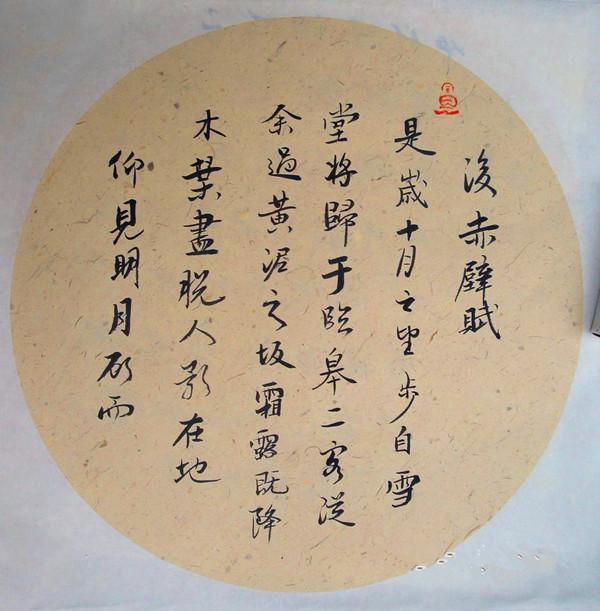 後赤壁賦
是歲十月之望步自雪
堂將歸于臨皋二客從
余過黃泥之坂霜露既降
木葉盡脫人影在地
仰見明月顧而